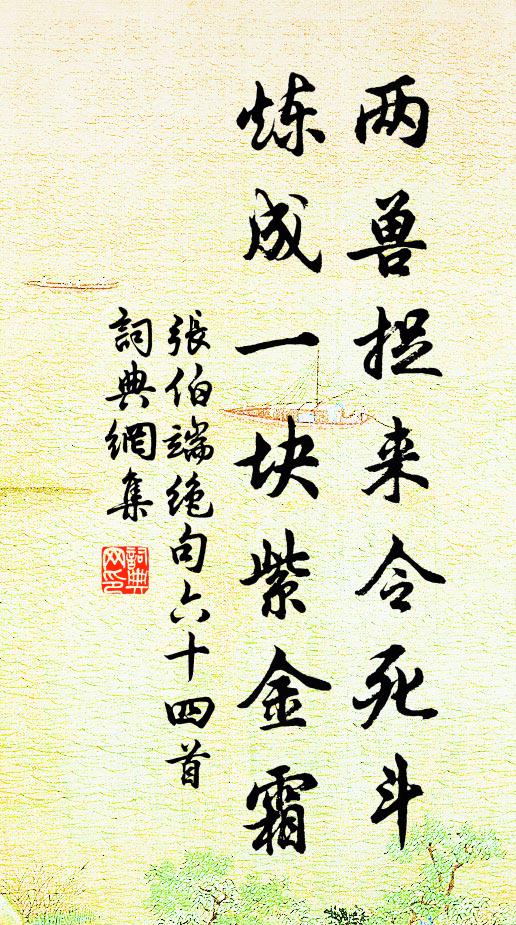 两兽捉来令死斗
炼成一块紫金霜
張伯端绝句六十四首
詞典網集
詞典网印